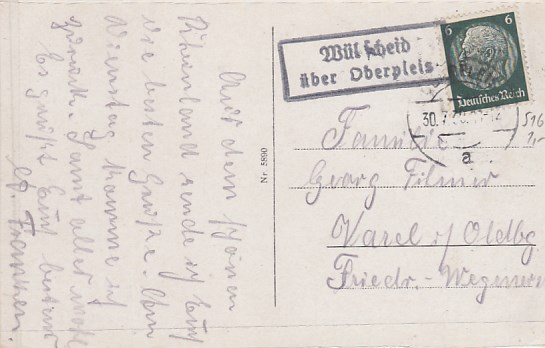 Aus dem schönen
Rheinland sende ich Euch
die besten Grüße. Am
Dienstag komme ich
zurück. Sonst alles
Es grüßt Euch bestens
Franken.
Nr. 5890
Wülscheid
über Oberpleis
6 6
Deutsches Reich
30.7.
a
516
Familie
Georg Filmer
Varel i/ Oldbg
Friedr.-Wegener